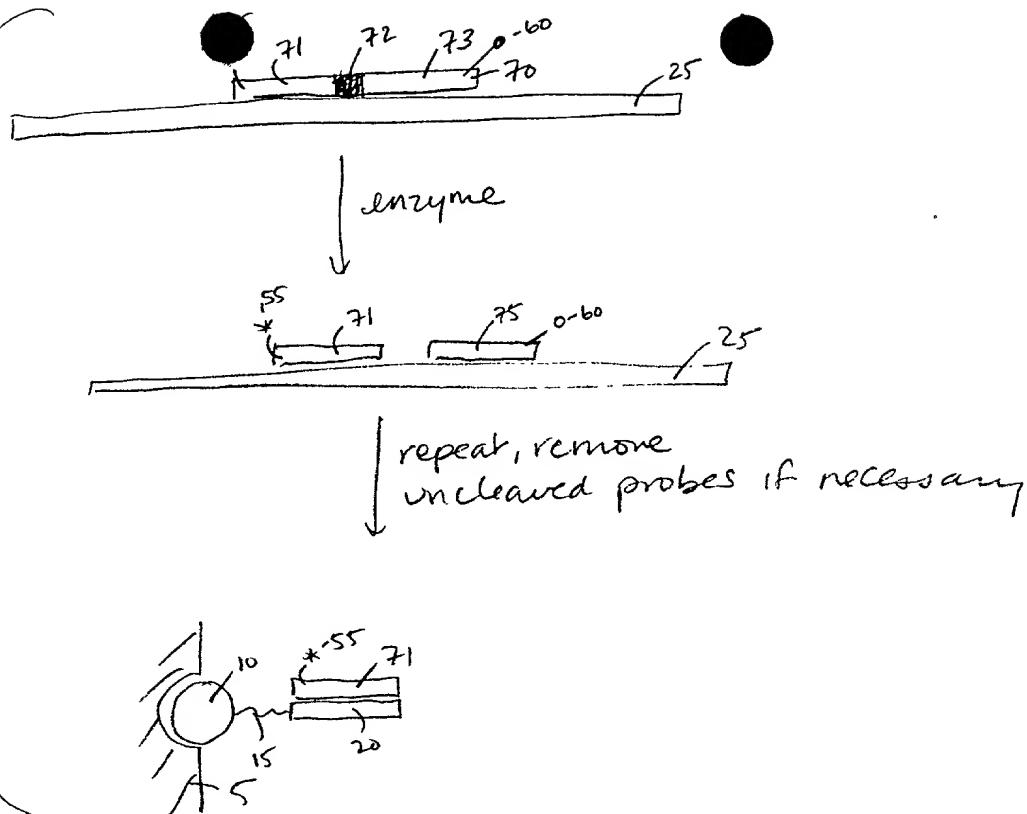 71 72 73 60
70
25
enzyme
55
* 71 75 60
25
repeat, remove
uncleaved probes if necessary
10 * 55 71
15 20
5